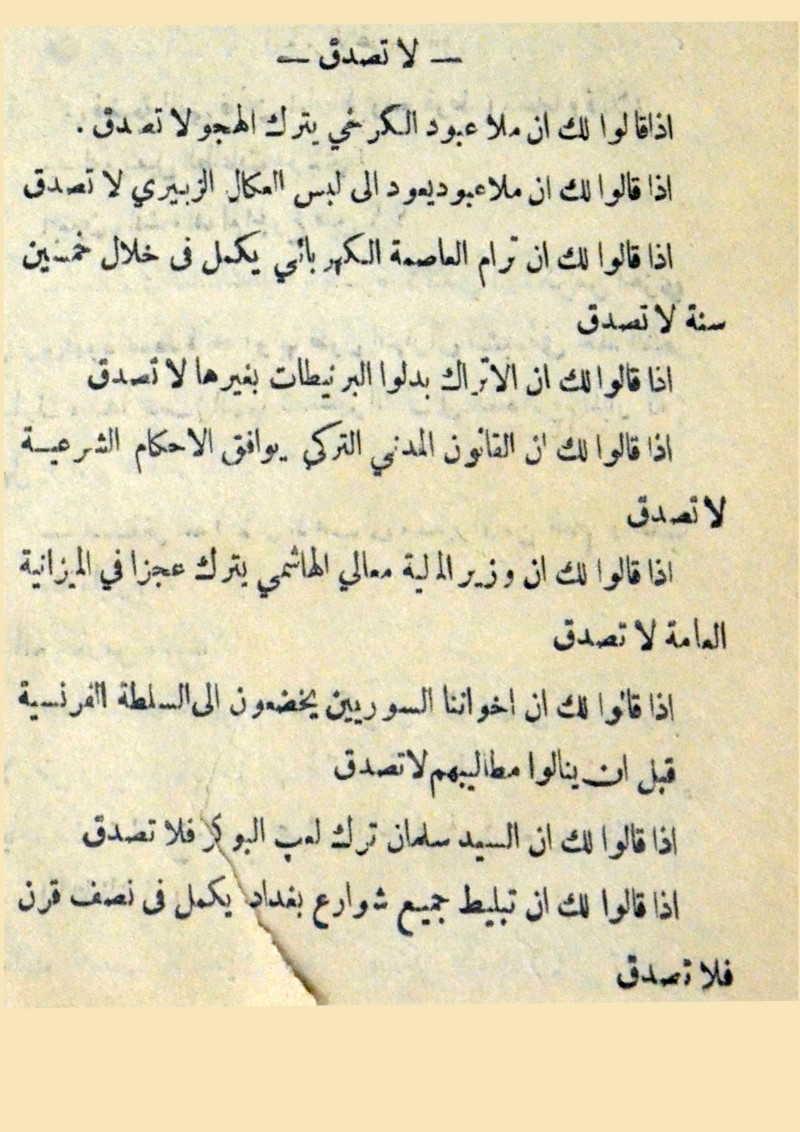 — لا تصدق —
اذا قالوا لك ان ملا عبود الكرخي يترك الهجو لا تصدق .
اذا قالوا لك ان ملا عبود يعود الى لبس العكال الزبيري لا تصدق
اذا قالوا لك ان ترام العاصمة الكهربائي يكمل فى خلال خمسين
سنة لا تصدق
اذا قالوا لك ان الاتراك بدلوا البرنيطات بغيرها لا تصدق
اذا قالوا لك ان القانون المدني التركي يوافق الاحكام الشرعية
لا تصدق
اذا قالوا لك ان وزير المالية معالي الهاشمي يترك عجزا في الميزانية
العامة لا تصدق
اذا قالوا لك ان اخواننا السوريين يخضعون الى السلطة الفرنسية
قبل ان ينالوا مطاليبهم لا تصدق
اذا قالوا لك ان السيد سلمان ترك لعب البوكر فلا تصدق
اذا قالوا لك ان تبليط جميع شوارع بغداد يكمل فى نصف قرن
فلا تصدق